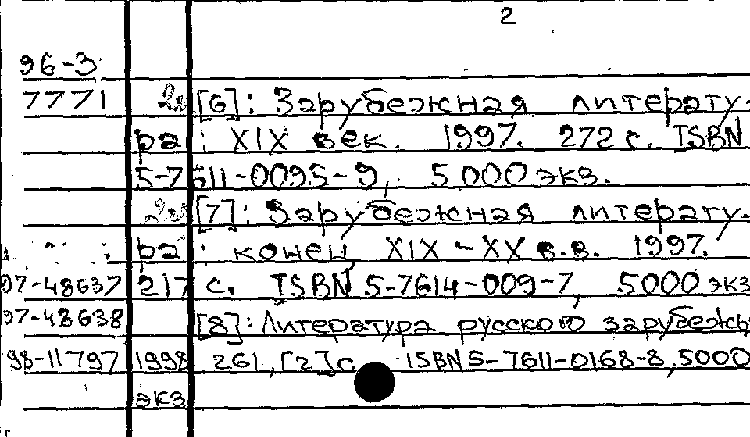 2
96-3
7771 2л [6]: Зарубежная литерату-
ра: XIX век. 1997. 272 с. ISBN
5-7611-0095-9, 5.000 экз.
[7]: Зарубежная литерату-
ра: конец XIX - XX в.в. 1997.
07-48637 217 с. ISBN 5-7614-009-7, 5000 экз
97-48638 [8]: Литература русского зарубежь
98-11797 1998 261, [2] с. ISBN 5-7611-0168-8, 5000
экз